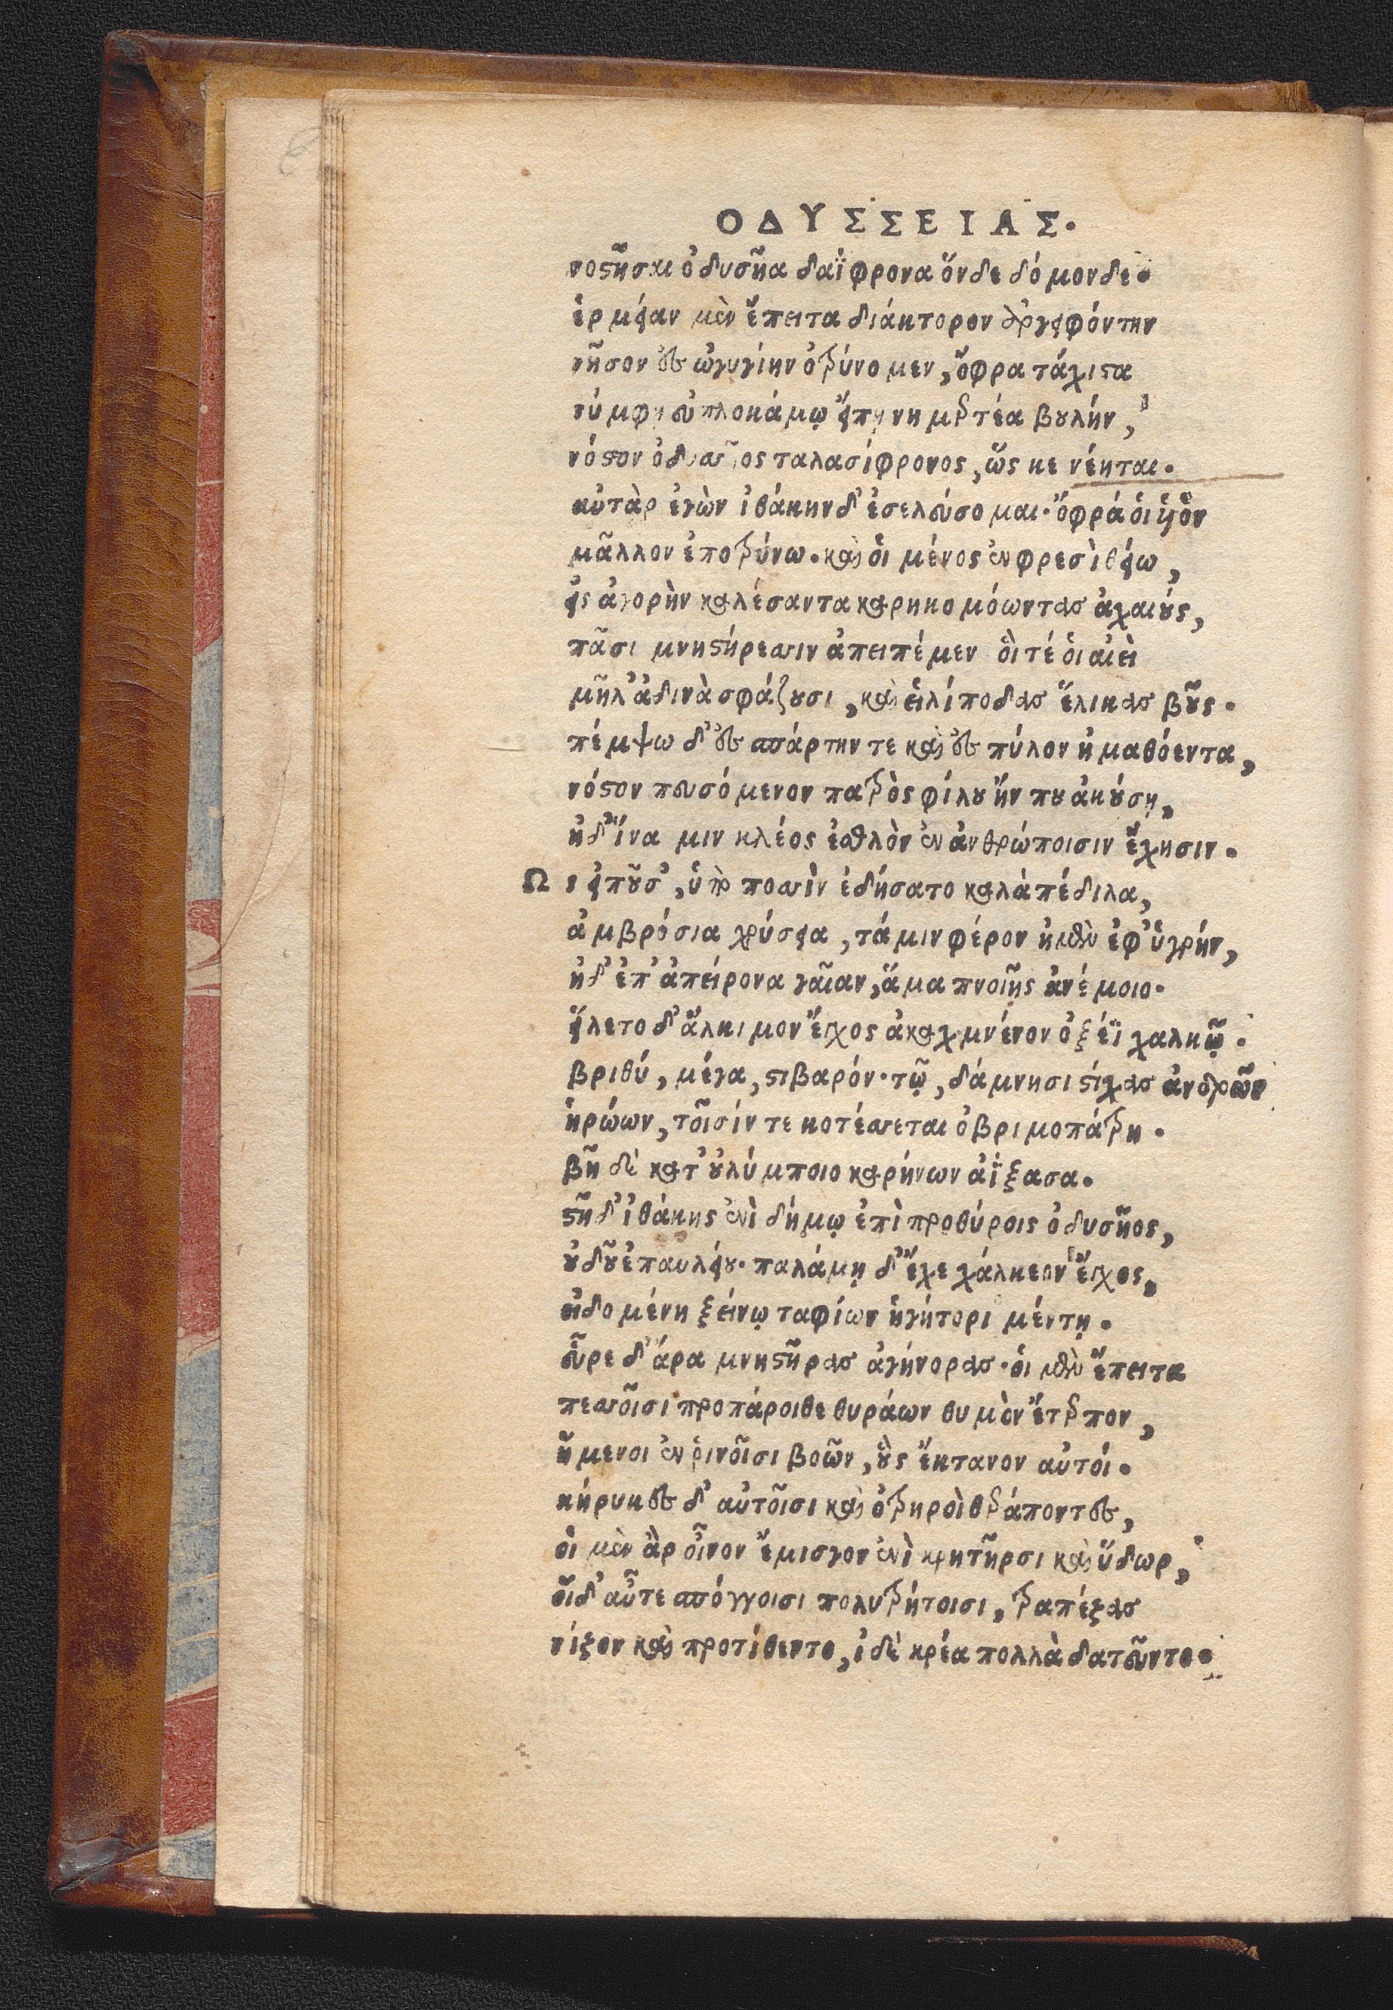 ΟΔΥΣΣΕΙΑΣ.
νοστῆσαι ὀδυσῆα δαΐφρονα ὅνδε δόμονδε.
ἑρμείαν μὲν ἔπειτα διάκτορον ἀργειφόντην
νῆσον ἐς ὠγυγίην ὀτρύνομεν, ὄφρα τάχιστα
νύμφῃ εὐπλοκάμῳ εἴπῃ νημερτέα βουλήν,
νόστον ὀδυσσῆος ταλασίφρονος, ὥς κε νέηται.
αὐτὰρ ἐγὼν ἰθάκηνδ' ἐσελεύσομαι. ὄφρά οἱ υἱὸν
μᾶλλον ἐποτρύνω. καὶ οἱ μένος ἐν φρεσὶ θείω,
εἰς ἀγορὴν καλέσαντα καρηκομόωντας ἀχαιούς,
πᾶσι μνηστήρεσσιν ἀπειπέμεν οἵ τέ οἱ αἰεὶ
μῆλ' ἁδινὰ σφάζουσι, καὶ εἰλίποδας ἕλικας βοῦς.
πέμψω δ' ἐς σπάρτην τε καὶ ἐς πύλον ἠμαθόεντα,
νόστον πευσόμενον πατρὸς φίλου ἤν που ἀκούσῃ,
ἠδ' ἵνα μιν κλέος ἐσθλὸν ἐν ἀνθρώποισιν ἔχησιν.
Ως εἰποῦσ', ὑπὸ ποσσὶν ἐδήσατο καλὰ πέδιλα,
ἀμβρόσια χρύσεια, τά μιν φέρον ἠμὲν ἐφ' ὑγρήν,
ἠδ' ἐπ' ἀπείρονα γαῖαν, ἅμα πνοιῇς ἀνέμοιο.
εἵλετο δ' ἄλκιμον ἔγχος ἀκαχμνένον ὀξέϊ χαλκῷ.
βριθύ, μέγα, στιβαρόν. τῷ, δάμνησι στίχας ἀνδρῶν
ἡρώων, τοῖσίν τε κοτέσσεται ὀβριμοπάτρη.
βῆ δὲ κατ' οὐλύμποιο καρήνων ἀΐξασα.
στῆ δ' ἰθάκης ἐνὶ δήμῳ ἐπὶ προθύροις ὀδυσῆος,
οὐδοῦ ἐπ' αυλείου. παλάμῃ δ' ἔχε χάλκεον ἔγχος,
εἰδομένη ξείνῳ ταφίων ἡγήτορι μέντῃ.
εὗρε δ' ἄρα μνηστῆρας ἀγήνορας. οἱ μὲν ἔπειτα
πεσσοῖσι προπάροιθε θυράων θυμὸν ἔτερπον,
ἥμενοι ἐν ῥινοῖσι βοῶν, οὓς ἔκτανον αὐτοί.
κήρυκες δ' αὐτοῖσι καὶ ὀτρηροὶ θεράποντες,
οἱ μὲν ἂρ οἶνον ἔμισγον ἐνὶ κρητῆρσι καὶ ὕδωρ,
οἵ δ' αὖτε σπόγγοισι πολυτρήτοισι, τραπέζας
νίζον καὶ προτίθεντο, ἰδὲ κρέα πολλὰ δατεῦντο.